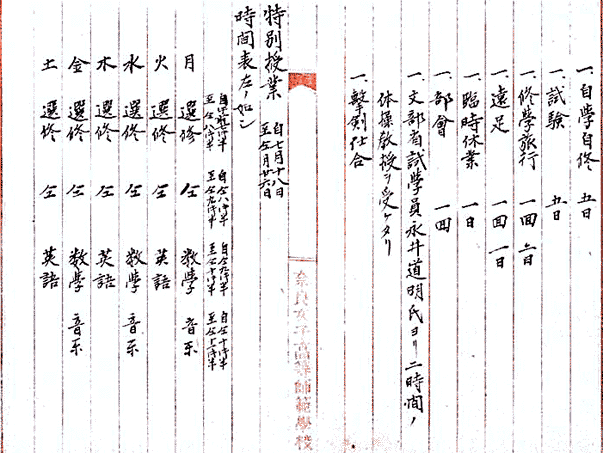 一、自學自修 五日
一、試験 五日
一、修學旅行 一回 日
一、遠足 一回 一日
一、臨時休業 一日
一、部會 一回
一、文部省試學員永井道明氏ヨリ二時間ノ
体操教授ヲ受ケタリ
一、撃剣仕合
奈良女子高等師範學校
特別授業 自七月十八日
至仝月廿六日
時間表左ノ如シ
自 時半 自仝八時半 自仝九時半 自仝十時半
至仝八時半 至仝九時半 至仝十時半 至仝十一時半
月 選修 仝 数學 音乐
火 選修 仝 英語
水 選修 仝 数學 音乐
木 選修 仝 英語
金 選修 仝 数學 音乐
土 選修 仝 英語